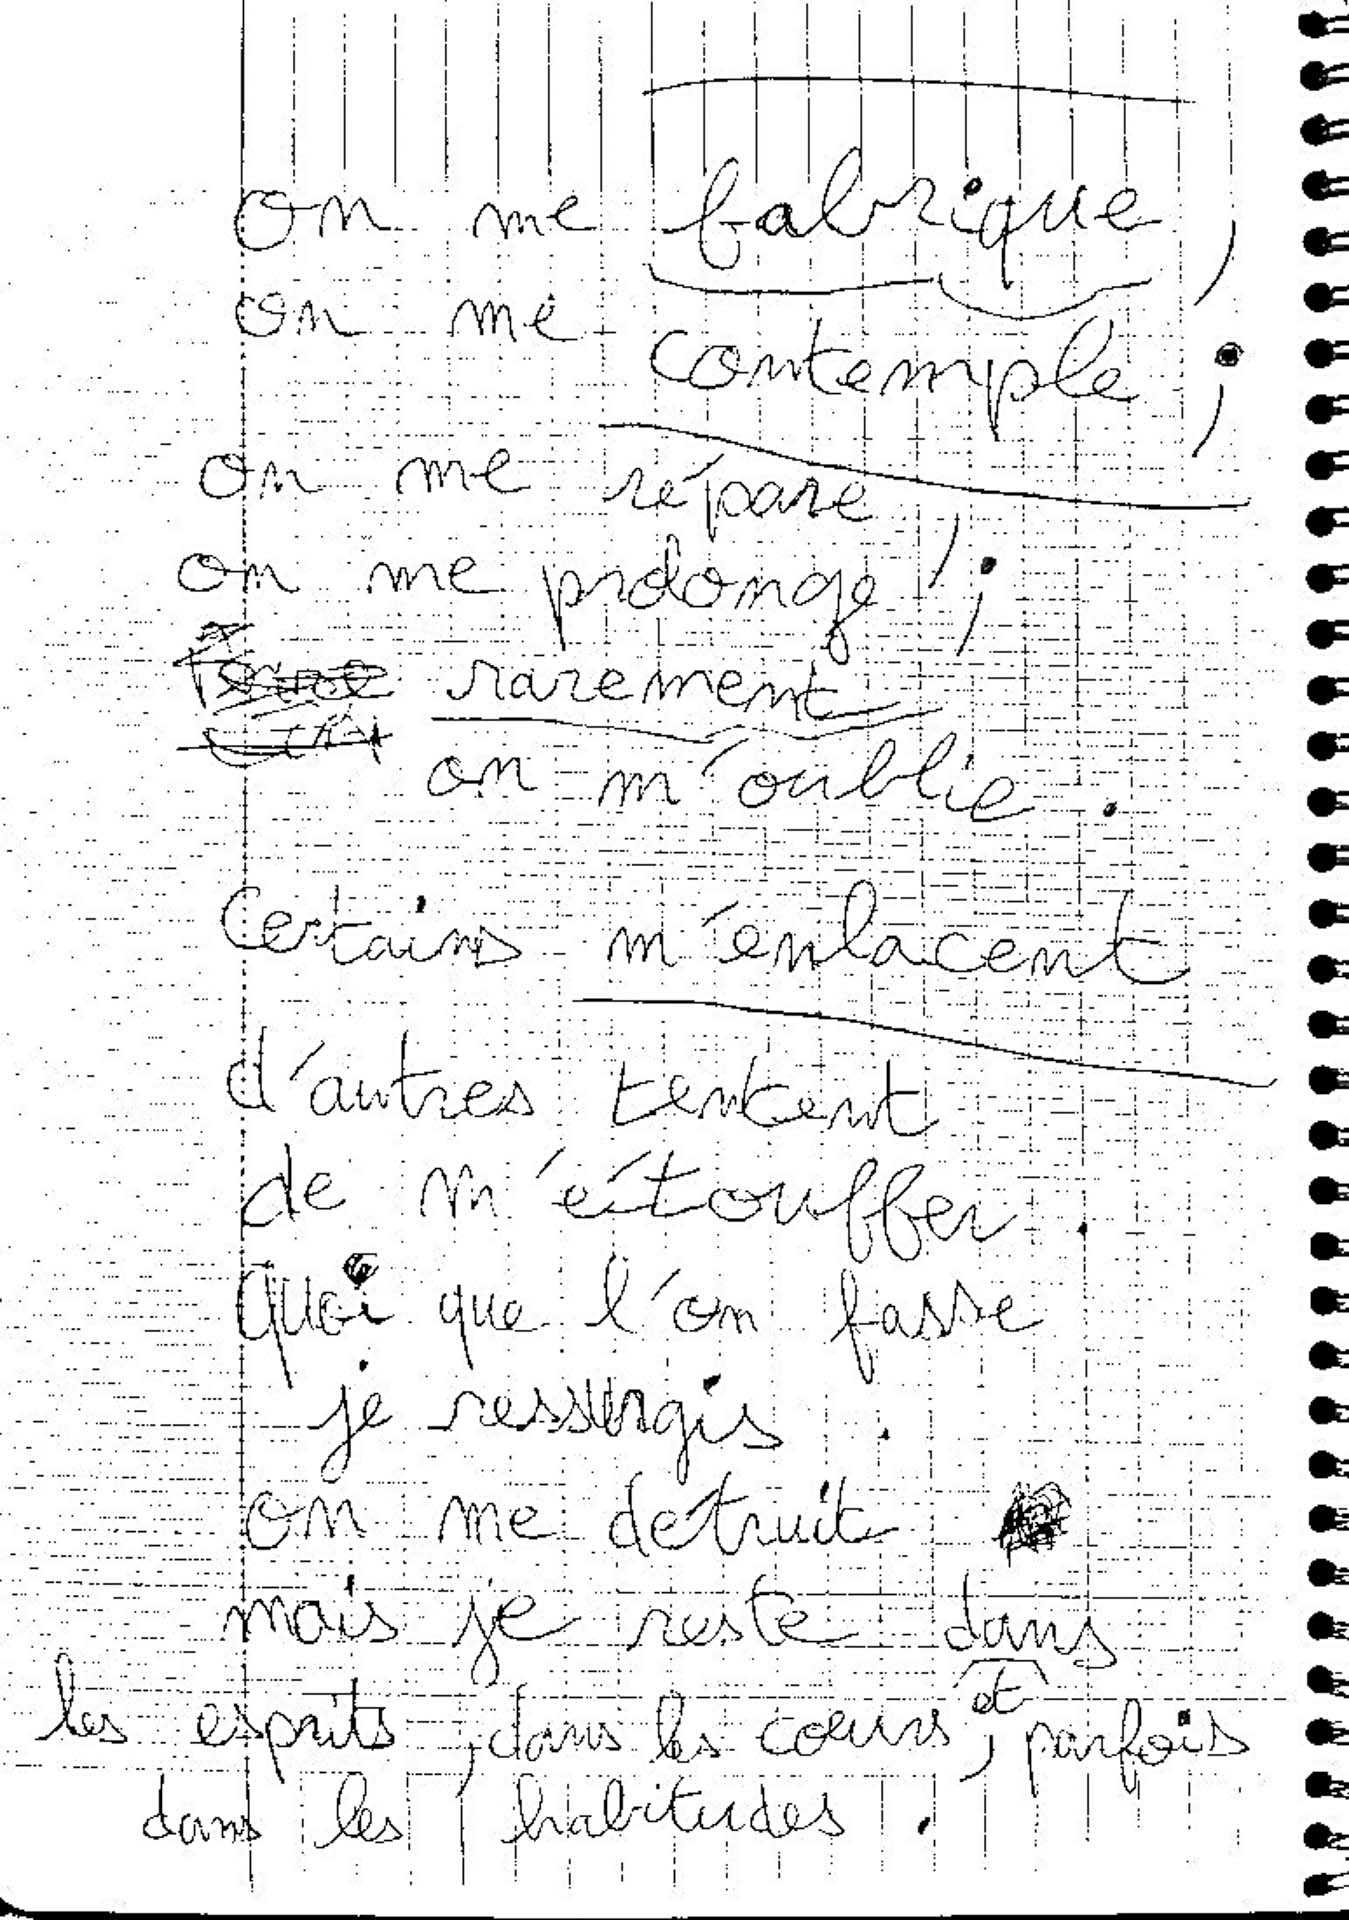 on me fabrique,
on me contemple ;
on me répare,
on me prolonge ;
rarement
on m'oublie.
Certains m'enlacent
d'autres tentent
de m'étouffer.
Quoi que l'on fasse
je ressurgis.
on me détruit
mais je reste dans
les esprits, dans les cœurs, et parfois
dans les habitudes.